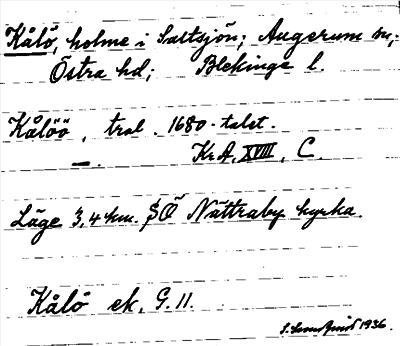 Kålö, holme i Saltsjön; Augerum sn;
Östra hd; Blekinge l.
Kålöö, trol. 1680-talet.
—. Kr A, XVIII, C.
Läge 3,4 km. SÖ Nättraby kyrka.
Kålö ek. G. 11.
1936.